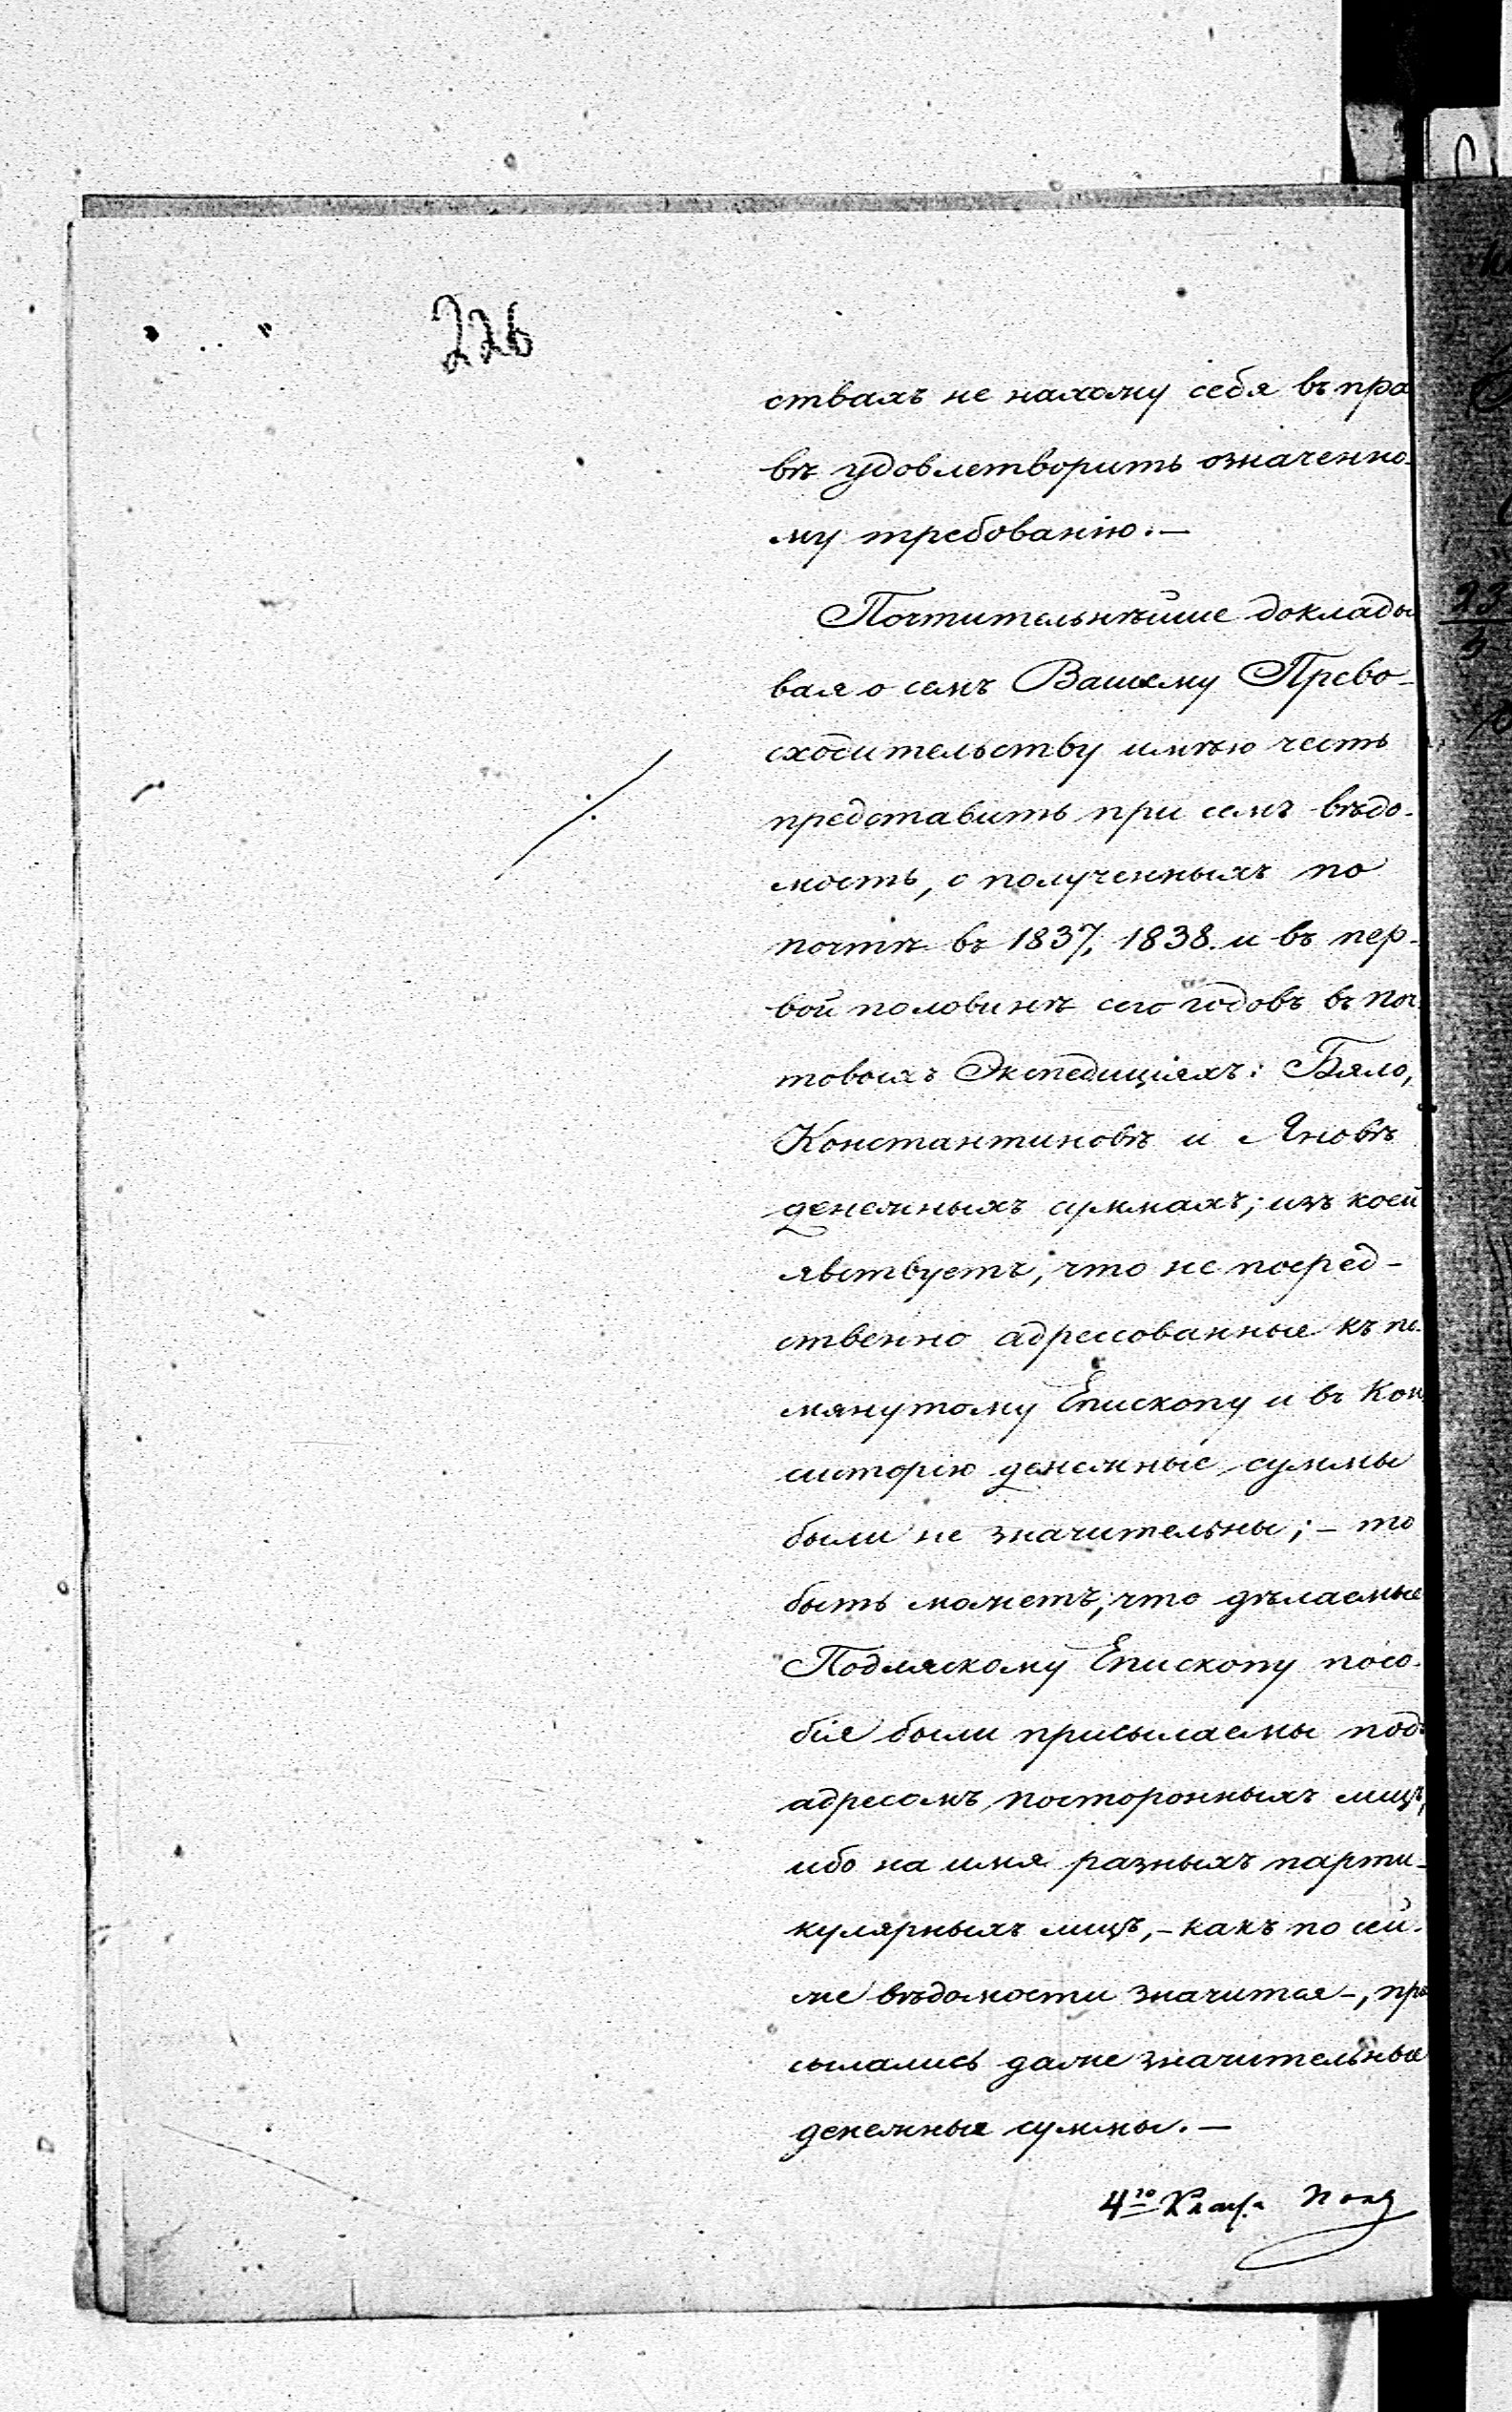 226
ствахъ не нахожу себя въ пра
вѣ удовлетворить означенно-
му требованію.—
Почтительнѣйше доклады
вая о семъ Вашему Прево-
сходительству имѣю честь
представить при семъ вѣдо-
мость, о полученныхъ по
почтѣ въ 1837, 1838. и въ пер-
вой половинѣ сего годовъ въ поч-
товыхъ Экспедиціяхъ: Бяло,
Константиновѣ и Яновѣ
денежныхъ суммахъ; изъ коей
явствуетъ, что не посред-
ственно адрессованные къ по-
мянутому Епископу и въ Кон
систорію денежные суммы
были не значительны; - то
быть можетъ, что дѣлаемые
Подляскому Епископу посо-
бія были присылаемы подъ
адресомъ посторонныхъ лицъ,
ибо на имя разныхъ парти-
кулярныхъ лицъ, - какъ по сей-
же вѣдомости значится -, при
сылались даже значительные
денежные суммы. —
4го Класса